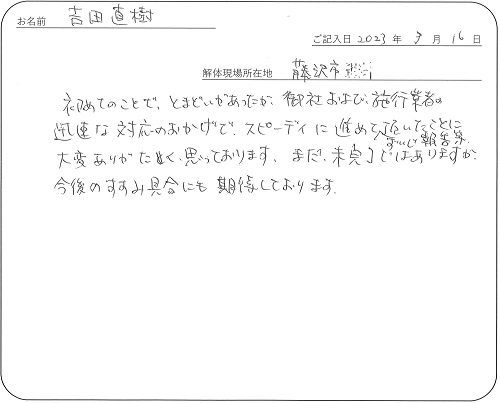 お名前 吉田直樹
ご記入日 2023年 3月 16日
解体現場所在地 藤沢市
初めてのことで、とまどいがあったが、御社および、施行業者の
迅速な対応のおかげで、スピーディに進めて頂いたことに
ずいじ報告等、
大変ありがたく、思っております、まだ、未完了ではありますが、
今後のすすみ具合にも期待しております。